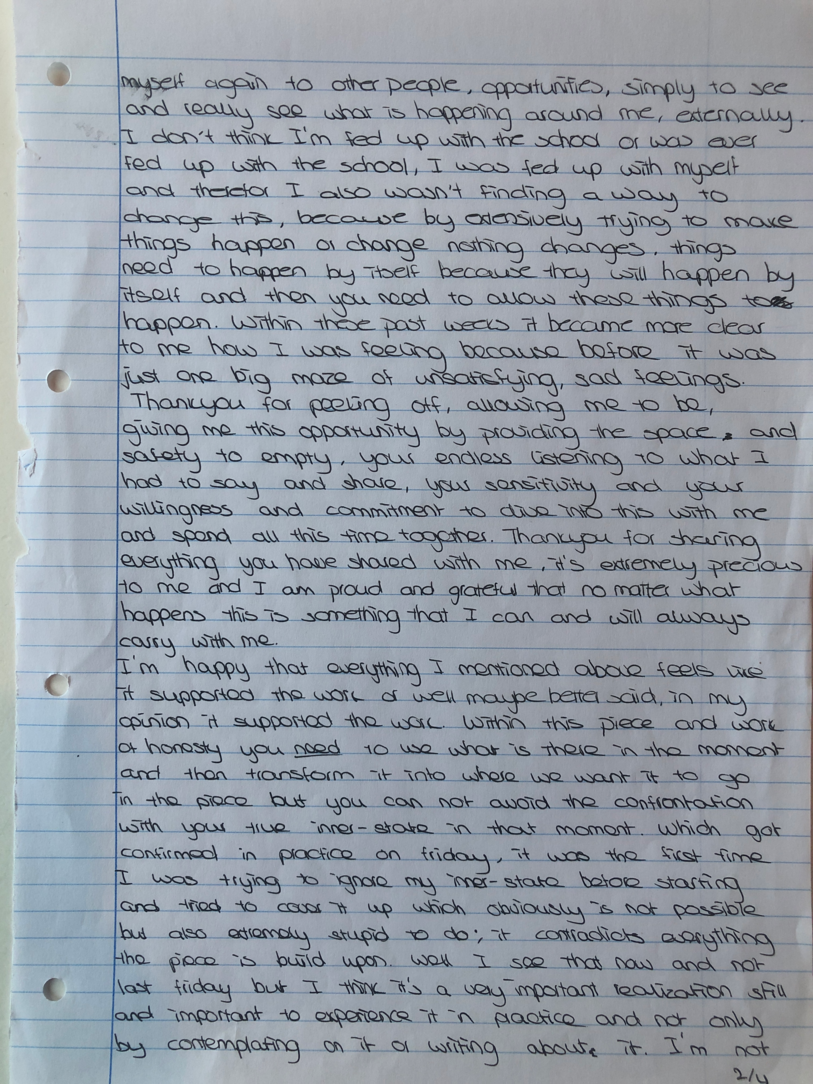 myself again to other people, opportunities, simply to see
and really see what is happening around me, externally.
I don't think I'm fed up with the school or was ever
fed up with the school, I was fed up with myself
and therefor I also wasn't finding a way to
change this, because by extensively trying to make
things happen or change nothing changes, things
need to happen by itself because they will happen by
itself and then you need to allow these things to
happen. Within these past weeks it became more clear
to me how I was feeling because before it was
just one big maze of unsatisfying, sad feelings.
Thankyou for peeling off, allowing me to be,
giving me this opportunity by providing the space, and
safety to empty, your endless listening to what I
had to say and share, your sensitivity and your
willingness and commitment to dive into this with me
and spend all this time together. Thankyou for sharing
everything you have shared with me, it's extremely precious
to me and I am proud and grateful that no matter what
happens this is something that I can and will always
carry with me.
I'm happy that everything I mentioned above feels like
it supported the work or well maybe better said, in my
opinion it supported the work. Within this piece and work
of honesty you need to use what is there in the moment
and then transform it into where we want it to go
in the piece but you can not avoid the confrontation
with your true inner-state in that moment. Which got
confirmed in practice on friday, it was the first time
I was trying to ignore my inner-state before starting
and tried to cover it up which obviously is not possible
but also extremely stupid to do; it contradicts everything
the piece is build upon. Well I see that now and not
last friday but I think it's a very important realization still
and important to experience it in practice and not only
by contemplating on it or writing about it. I'm not
2/4